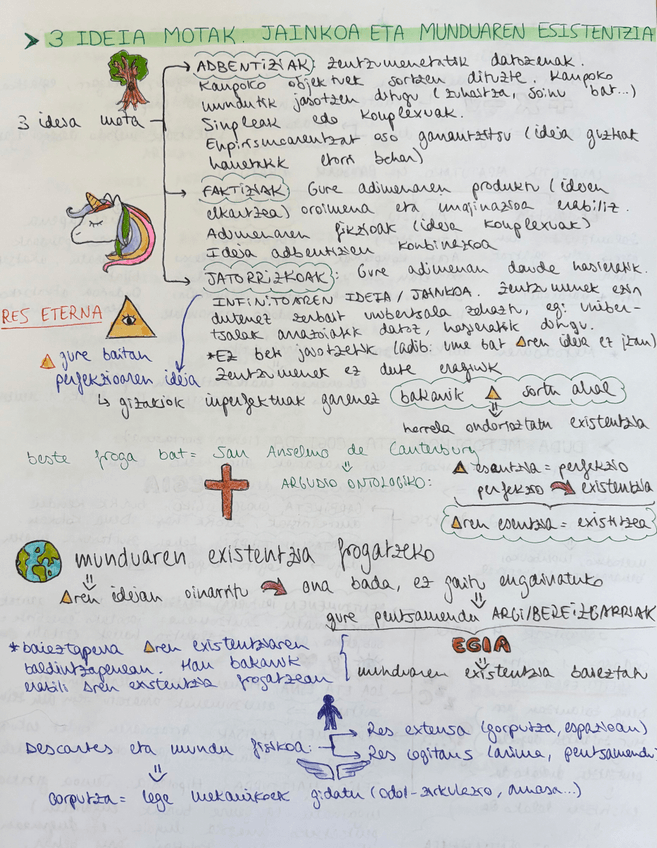 > 3 IDEIA MOTAK. JAINKOA ETA MUNDUAREN ESISTENTZIA
3 ideia mota
ADBENTIZIAK: zentzumenetatik datozenak.
Kanpoko objektuek sortzen dituzte. Kanpoko
mundutik jasotzen ditugu (zuhaitza, soinu bat...)
Sinpleak edo konplexuak.
Enpirismoarentzat oso garrantzitsu (ideia guztiak
hauetatik etorri behar)
FAKTIZIAK: Gure adimenaren produktu (ideien
elkartzea) oroimena eta imajinazioa erabiliz.
Adimenaren fikzioak (ideia konplexuak)
Ideia adbentizien konbinazioa
JATORRIZKOAK: Gure adimenan daude hasieratik.
INFINITOAREN IDEIA / JAINKOA. Zentzumenek ezin
dutenez zerbait unibertsala zehaztu, egi uniber-
tsalak arrazoiatik datoz, hasieratik ditugu.
*Ez beti jasotzetik (adib: ume bat ren ideia ez izan)
Zentzumenek ez dute eraginik
RES ETERNA
gure baitan
perfekzioaren ideia
↳ gizakiok inperfektuak garenez
bakarrik sortu ahal
⇓
horrela ondorioztatu existentzia
beste froga bat = San Anselmo de Canterbury
⇓
ARGUDIO ONTOLOGIKO:
esentzia = perfekzio
perfekzio → existentzia
ren esentzia = existitzea
munduaren existentzia frogatzeko
⇓
ren ideian oinarritu → ona bada, ez gaitu engainatuko
⇓
gure pentsamendu ARGI/BEREIZGARRIAK
EGIA
⇓
munduaren existentzia baieztatu
*baieztapena ren existentziaren
baldintzapenean. Hau bakarrik
erabili ren existentzia frogatzean
Descartes eta mundu fisikoa:
Res extensa (gorputza, espazioan)
Res cogitans (arima, pentsamendu)
⇓
Gorputza = lege mekanikoek gidatu (odol-zirkulazio, arnasa...)